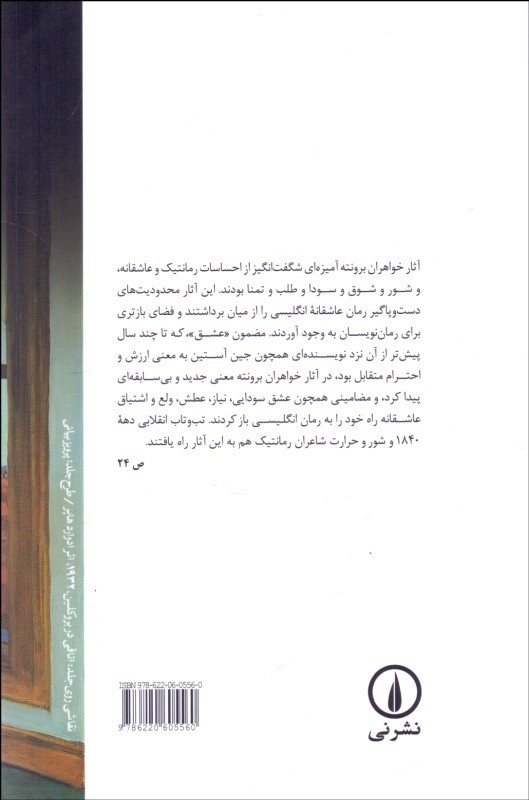 آثار خواهران برونته آمیزه‌ای شگفت‌انگیز از احساسات رمانتیک و عاشقانه،
و شور و شوق و سودا و طلب و تمنا بودند. این آثار محدودیت‌های
دست‌وپاگیر رمان عاشقانهٔ انگلیسی را از میان برداشتند و فضای بازتری
برای رمان‌نویسان به وجود آوردند. مضمون «عشق»، که تا چند سال
پیش‌تر از آن نزد نویسنده‌ای همچون جین آستین به معنی ارزش و
احترام متقابل بود، در آثار خواهران برونته معنی جدید و بی‌سابقه‌ای
پیدا کرد، و مضامینی همچون عشق سودایی، نیاز، عطش، ولع و اشتیاق
عاشقانه راه خود را به رمان انگلیسی باز کردند. تب‌وتاب انقلابی دههٔ
۱۸۴۰ و شور و حرارت شاعران رمانتیک هم به این آثار راه یافتند.
ص ۲۴
نقاشی روی جلد: اتاقی در بروکلین، ۱۹۳۲، اثر ادوارد هاپر / طرح جلد: پرویز بیانی
ISBN 978-622-06-0556-0
9 786220 605560
نشرنی